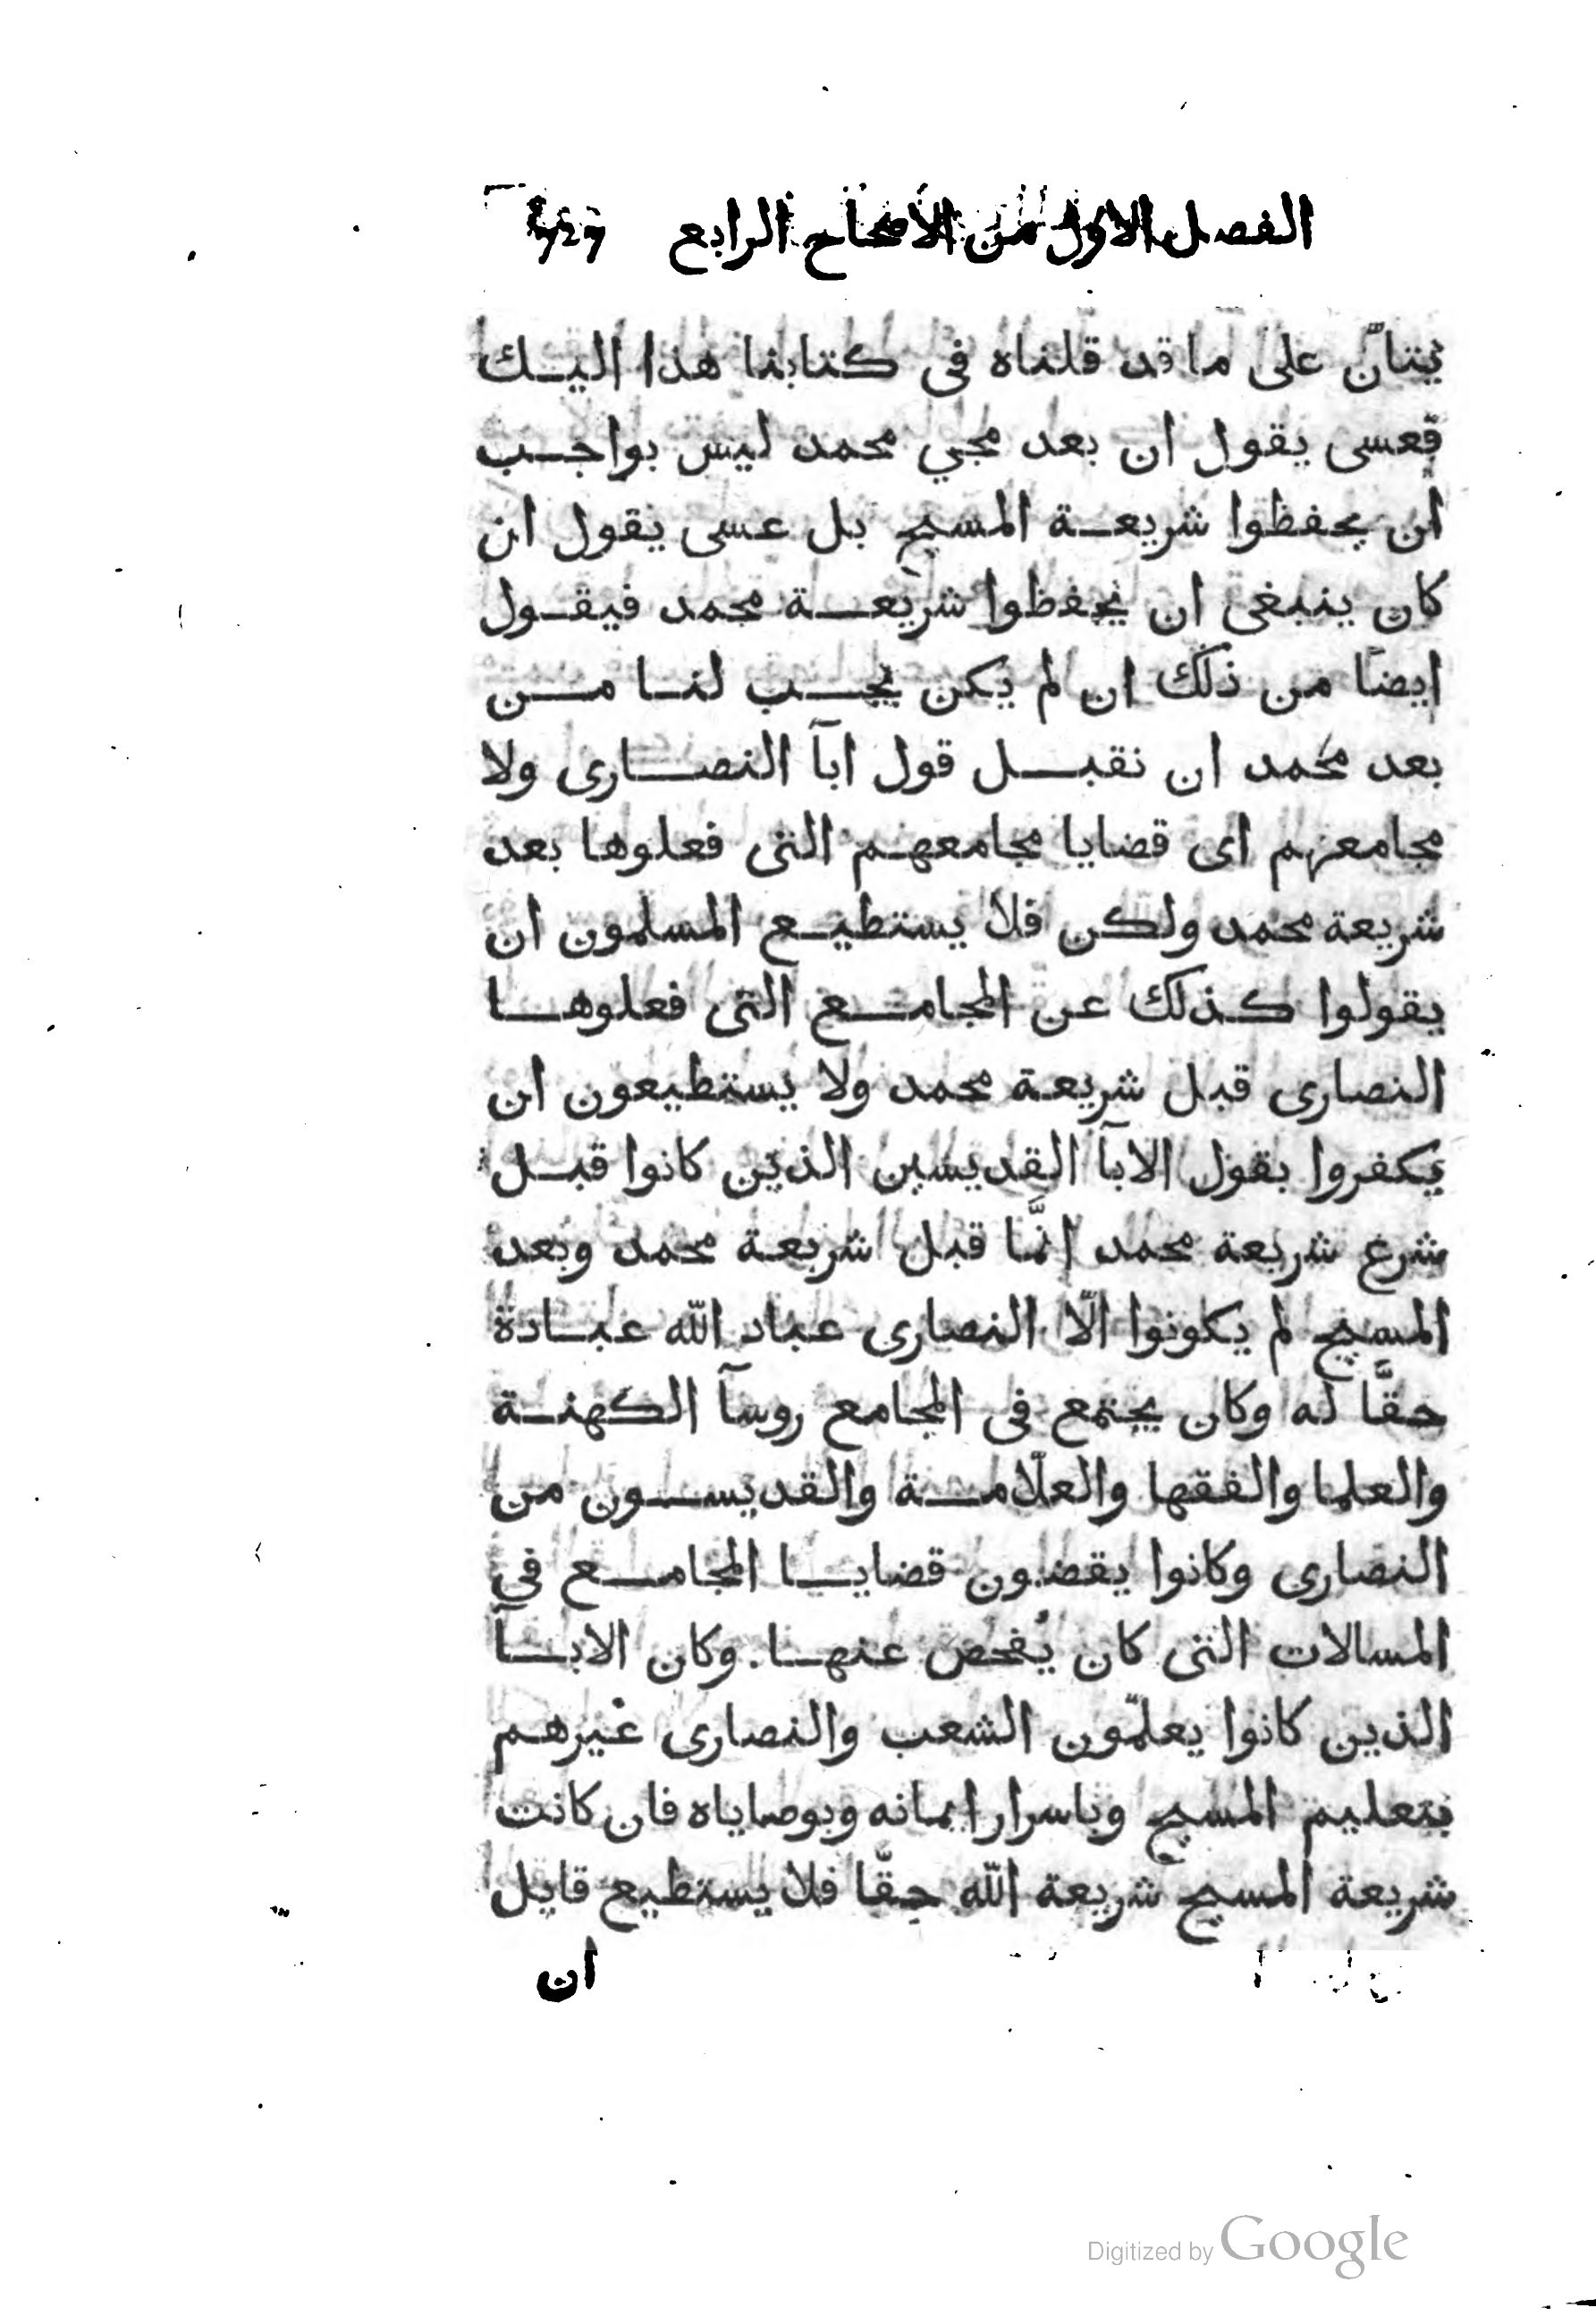 الفصل الاول من الاصحاح الرابع
على ما قد قلناه فى كتابنا هذا اليك
فعسى يقول ان بعد مجي محمد ليس بواجب
ان يحفظوا شريعة المسيح بل عسى يقول ان
كان ينبغى ان يحفظوا شريعة محمد فيقول
ايضا من ذلك ان لم يكن يجب لنا من
بعد محمد ان نقبل قول ابآ النصارى ولا
مجامعهم اى قضايا مجامعهم التى فعلوها بعد
شريعة محمد ولكن فلا يستطيع المسلمون ان
يقولوا كذلك عن المجامع التى فعلوها
النصارى قبل شريعة محمد ولا يستطيعون ان
يكفروا بقول الابآ القديسين الذين كانوا قبل
شرع شريعة محمد انَّما قبل شريعة محمد وبعد
المسيح لم يكونوا الّا النصارى عباد الله عبادة
حقَّا له وكان يجتمع فى المجامع روسآ الكهنة
والعلما والفقها والعلّامة والقديسون من
النصارى وكانوا يقضون قضايا المجامع فى
المسالات التى كان يُفحص عنها. وكان الابآ
الذين كانوا يعلّمون الشعب والنصارى غيرهم
بتعليم المسيح وباسرار ايمانه وبوصاياه فان كانت
شريعة المسيح شريعة الله حقَّا فلا يستطيع قايل
ان
Digitized by Google